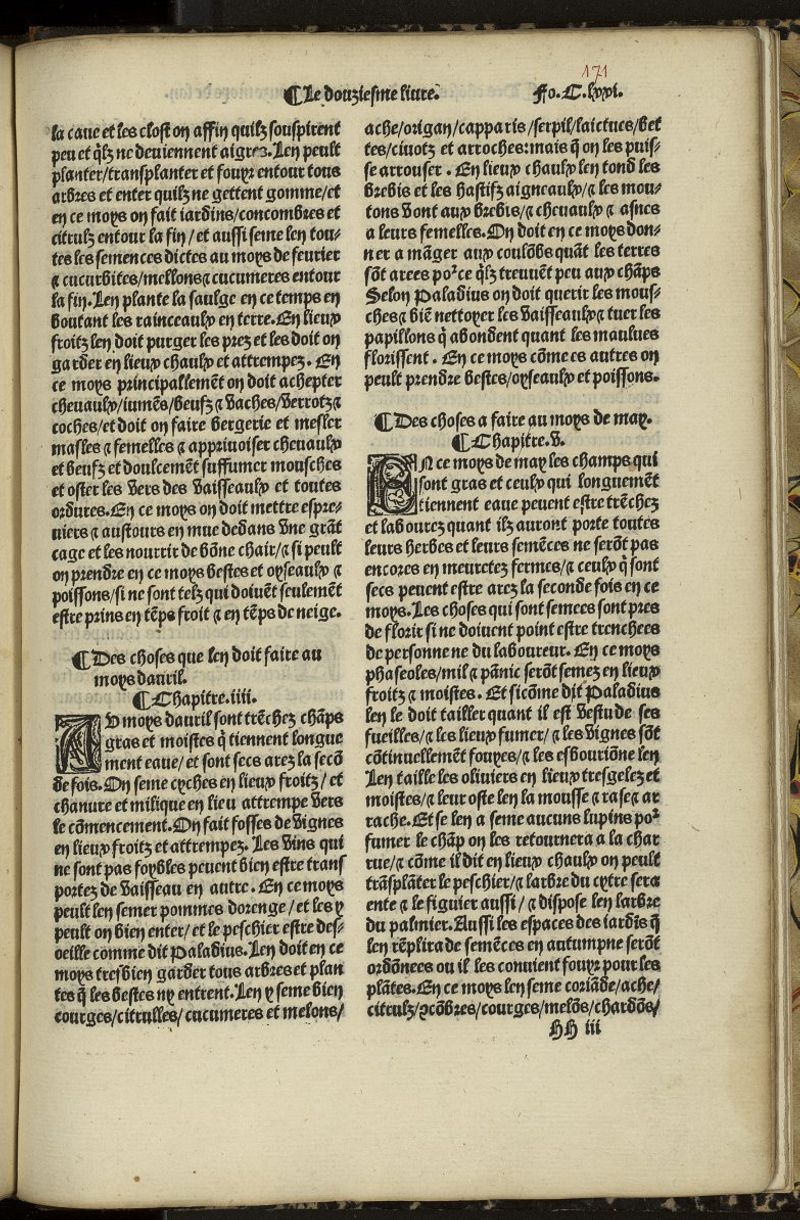 171
¶Le douziesme liure.
Fo.C.lxxi.
la caue et les clost on affin quilz souspirent
peu et q̃lz ne deuiennent aigres. Len peult
planter/transplanter et fouyr entour tous
arbres et enter quilz ne gettent gomme/et
en ce moys on fait iardins/concombres et
citrulz entour la fin/et aussi seme len tou⸗
tes les semences dictes au moys de feurier
⁊ cucurbites/mellons⁊ cucumeres entour
la fin. Len plante la saulge en ce temps en
boutant les rainceaulx en terre. En lieux
froitz len doit purger les prez et les doit on
garder en lieux chaulx et attrempez. En
ce moys principallemẽt on doit achepter
cheuaulx/iumẽs/beufz ⁊ vaches/verrotz⁊
coches/et doit on faire bergerie et mesler
masles ⁊ femelles ⁊ appriuoiser cheuaulx
et beufz et doulcemẽt suffumer mousches
et oster les vers des vaisseaulx et toutes
ordures. En ce moys on doit mettre espre⸗
uiers ⁊ austours en mue dedans vne grãt
cage et les nourrir de bõne chair/⁊ si peult
on prendre en ce moys bestes et oyseaulx ⁊
poissons/si ne sont telz qui doiuẽt seulemẽt
estre prins en tẽps froit ⁊ en tẽps de neige.
¶Des choses que len doit faire au
moys dauril.
¶Chapitre.iiii.
AV moys dauril sont trẽchez chãps
gras et moistes q̃ tiennent longue
ment eaue/et sont secs arez la secõ
de fois. On seme cyches en lieux froitz/et
chanure et milique en lieu attrempe vers
le cõmencement. On fait fosses de vignes
en lieux froitz et attrempez. Les vins qui
ne sont pas foybles peuent bien estre trans
portez de vaisseau en autre. En ce moys
peult len semer pommes dorenge/et les y
peult on bien enter/et le peschier estre des⸗
oeille comme dit Paladius. Len doit en ce
moys tresbien garder tous arbres et plan
tes q̃ les bestes ny entrent. Len y seme bien
courges/citrulles/cucumeres et melons/
ache/origan/capparis/serpil/laictues/bet
tes/ciuotz et arroches:mais q̃ on les puis⸗
se arrouser. En lieux chaulx len tond les
brebis et les hastifz aigneaulx/⁊ les mou⸗
tons vont aux brebis/⁊ cheuaulx ⁊ asnes
a leurs femelles. On doit en ce moys don⸗
ner a mãger aux coulõbs quãt les terres
sõt arees poꝛce q̃lz treuuẽt peu aux chãps
Selon Paladius on doit querir les mous⸗
ches⁊ biẽ nettoyer les vaisseaulx⁊ tuer les
papillons q̃ abondent quant les maulues
florissent. En ce moys cõme es autres on
peult prendre bestes/oyseaulx et poissons.
¶Des choses a faire au moys de may.
¶Chapitre.v.
EN ce moys de may les champs qui
sont gras et ceulx qui longuemẽt
tiennent eaue peuent estre trẽchez
et labourez quant ilz auront porte toutes
leurs herbes et leurs semẽces ne serõt pas
encores en meuretez fermes/⁊ ceulx q̃ sont
secs peuent estre arez la seconde fois en ce
moys. Les choses qui sont semees sont pres
de florir si ne doiuent point estre trenchees
de personne ne du laboureur. En ce moys
phaseoles/mil⁊ pãnic serõt semez en lieux
froitz ⁊ moistes. Et sicõme dit Paladius
len le doit tailler quant il est vestude ses
fueilles/⁊ les lieux fumer/⁊ les vignes sõt
cõtinuellemẽt fouyes/⁊ les esbouriõne len
Len taille les oliuiers en lieux tresgelez et
moistes/⁊ leur oste len la mousse ⁊ rase⁊ ar
rache. Et se len a seme aucuns lupins poꝛ
fumer le chãp on les retournera a la char
rue/⁊ cõme il dit en lieux chaulx on peult
trãsplãter le peschier/⁊ larbre du cytre sera
ente ⁊ le figuier aussi/⁊ dispose len larbre
du palmier. Aussi les espaces des iardĩs q̃
len rẽplira de semẽces en autumpne serõt
ordõnees ou il les conuient fouyr pour les
plãtes. En ce moys len seme coriãde/ache/
citrulz/ꝯcõbres/courges/melõs/chardõs/
HH iii